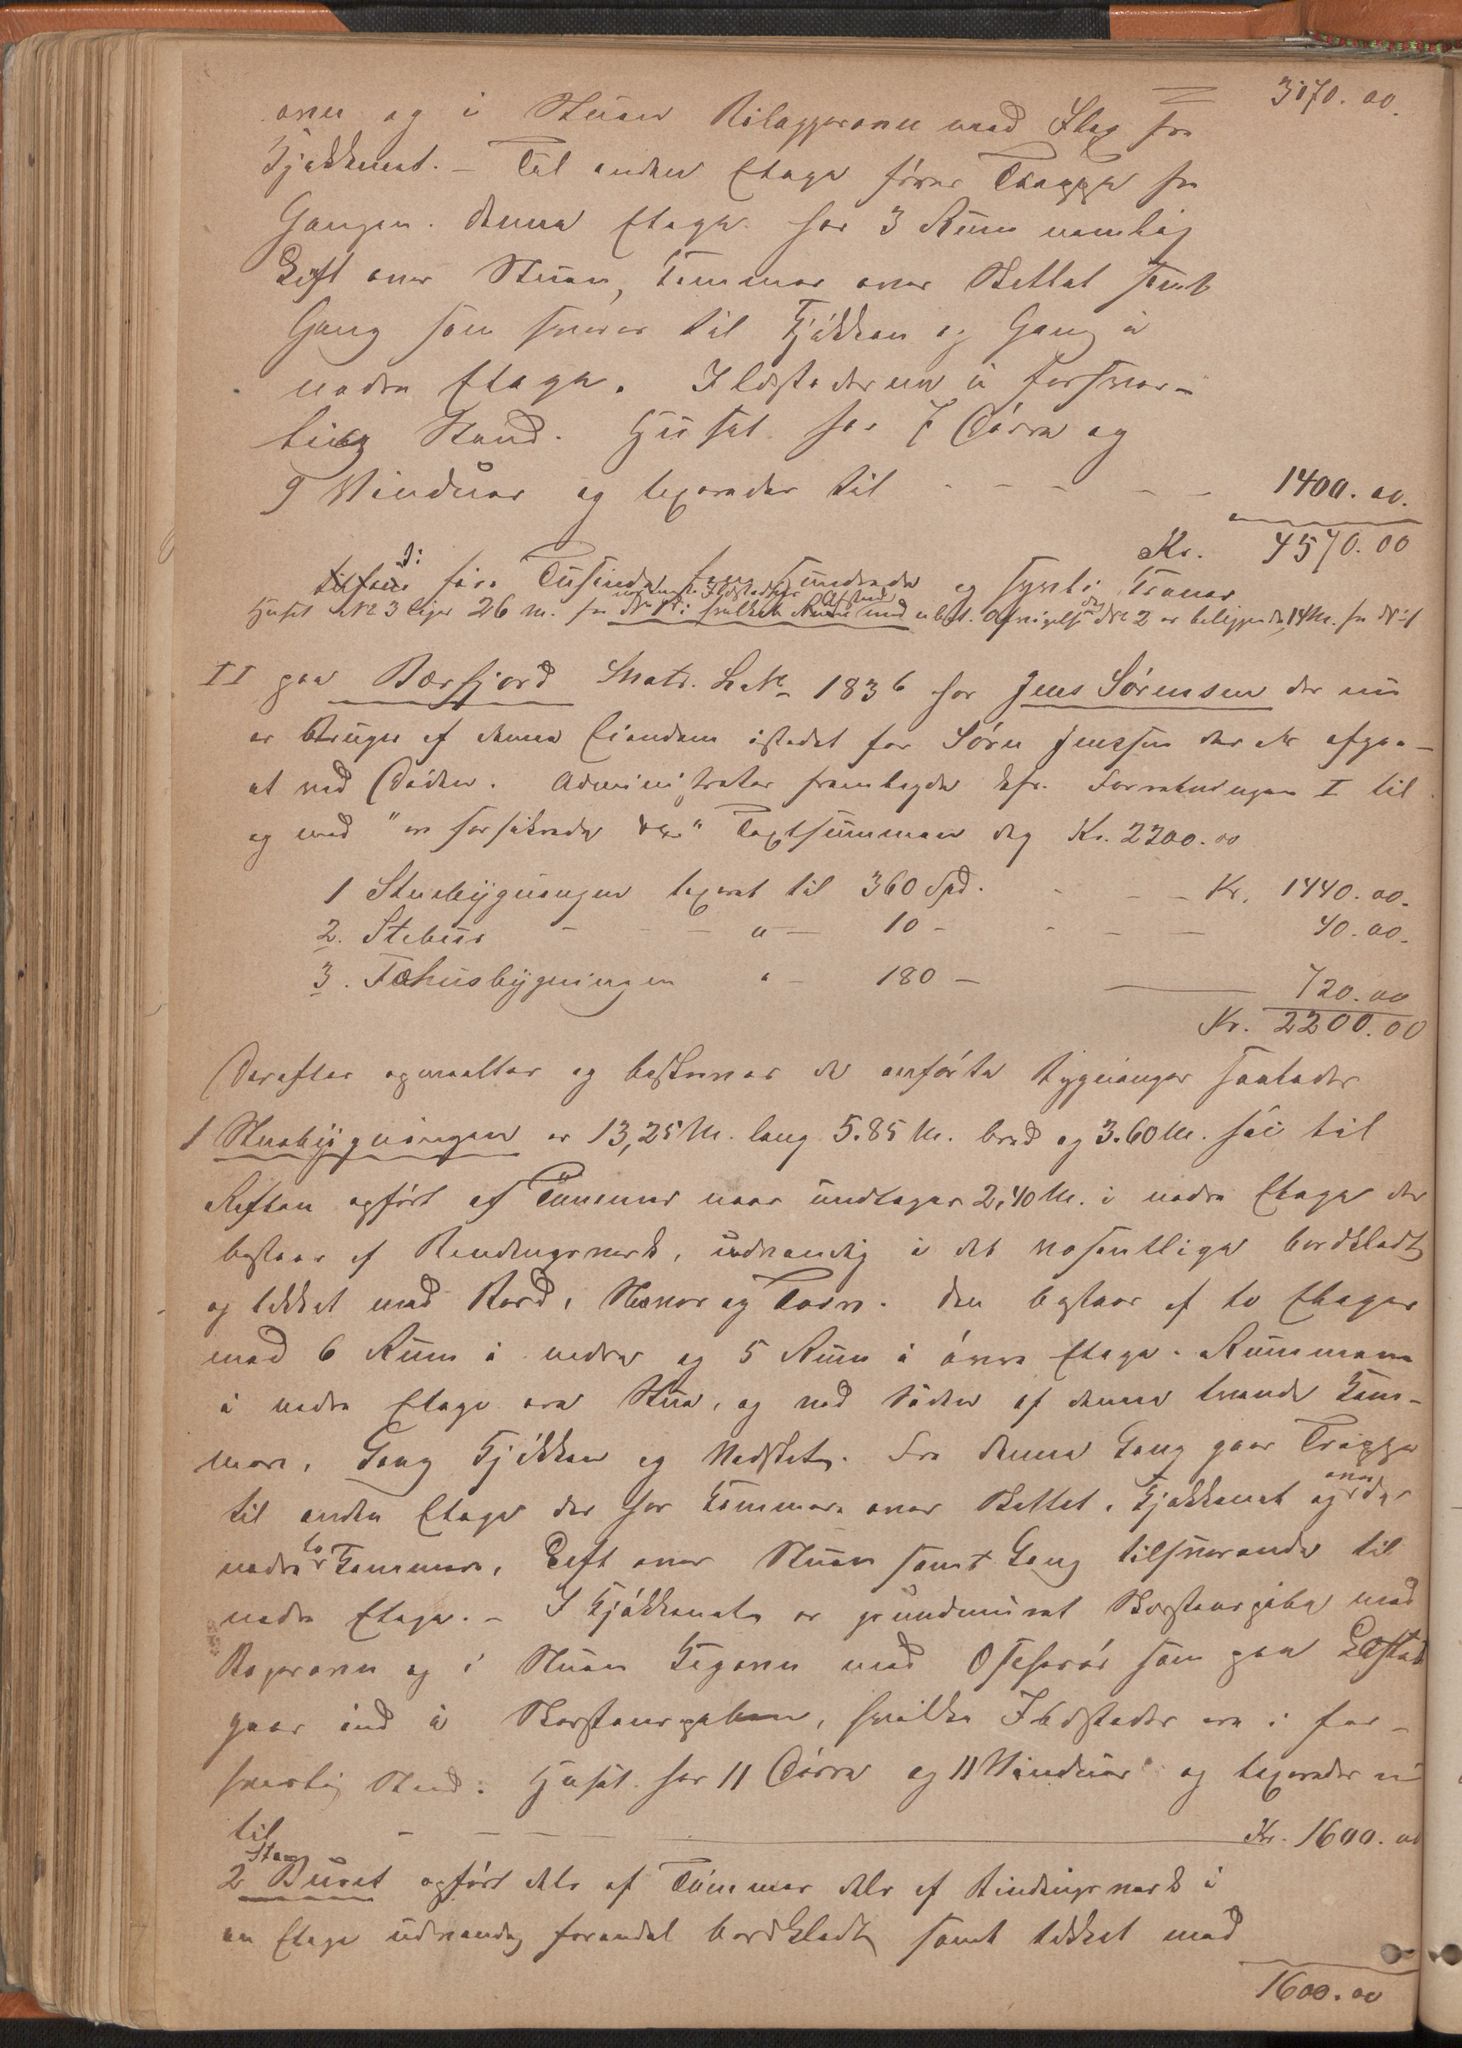 3170.00.
ovn og i Stuen Bilæggerovn med Ilæg fra
Kjøkkenet. – Til anden Etage fører Trappe fra
Gangen. Denne Etage har 3 Rum nemlig
Loft over Stuen, Kammer over Kottet samt
Gang som svarer til Kjøkken og Gang i
nedre Etage. Ildstederne i forsvar-
lig Stand. Huset har 7 Dørre og
9 Vinduer og taxeredes til - - - - - 1400.00.
Kr. 4570.00
fire Tusinde fem Hundrede og sytti Kroner
Huset No 3 ligger 26 M. fra No 1 hvilket Rum med No 2 er beliggende 14 M. fra No 1
II paa Bærfjord Matr. L.No 1836 for Jens Sørensen der nu
er Bruger af denne Eiendom istedet for Søren Jenssen der er afgaa-
et ved Døden. Administrator fremlagde Afs. Forretningen I til
og med "er forsikrede &c" Taxtsummen dog Kr. 2200.00
1 Stuebygningen taxeret til 360 Spd. - - - Kr. 1440.00.
2. Stabur - - - " — 10 - - - — 40.00.
3. Fæhusbygningen " — 180 — — 720.00
Kr. 2200.00
Derefter opmaaltes og beskreves de anførte Bygninger saaledes
1 Stuebygningen er 13,25 M. lang 5.85 M. bred og 3.60 M. høi til
Raften opført af Tømmer naar undtages 2,40 M. i nedre Etage der
bestaar af Bindingsverk, udvendig i det væsentlige bordklædt
og tækket med Bord, Næver og Torv. Den bestaar af to Etager
med 6 Rum i nedre og 5 Rum i øvre Etage. Rummene
i nedre Etage ere Stue, og ved Siden af denne tvende Kam-
mere, Gang Kjøkken og Vedskot. Fra denne Gang gaar Trappe
til anden Etage der har Kammere over Kottet, Kjøkkenet og over de
nedre to Kammere, Loft over Stuen samt Gang tilsvarende til
nedre Etage. – I Kjøkkenet er grundmuret Skorstenspibe med
Bagerovn og i Stuen Kogeovn med Osehorør som paa Loftet
gaar ind i Skorstenspiben, hvilke Ildsteder ere i for-
svarlig Stand. Huset har 11 Dørre og 11 Vinduer og taxeredes
til - - - — Kr. 1600.00
2 Stabburet opført dels af Tømmer dels af Bindingsverk i
en Etage udvendig forendel bordklædt samt tækket med
1600.00